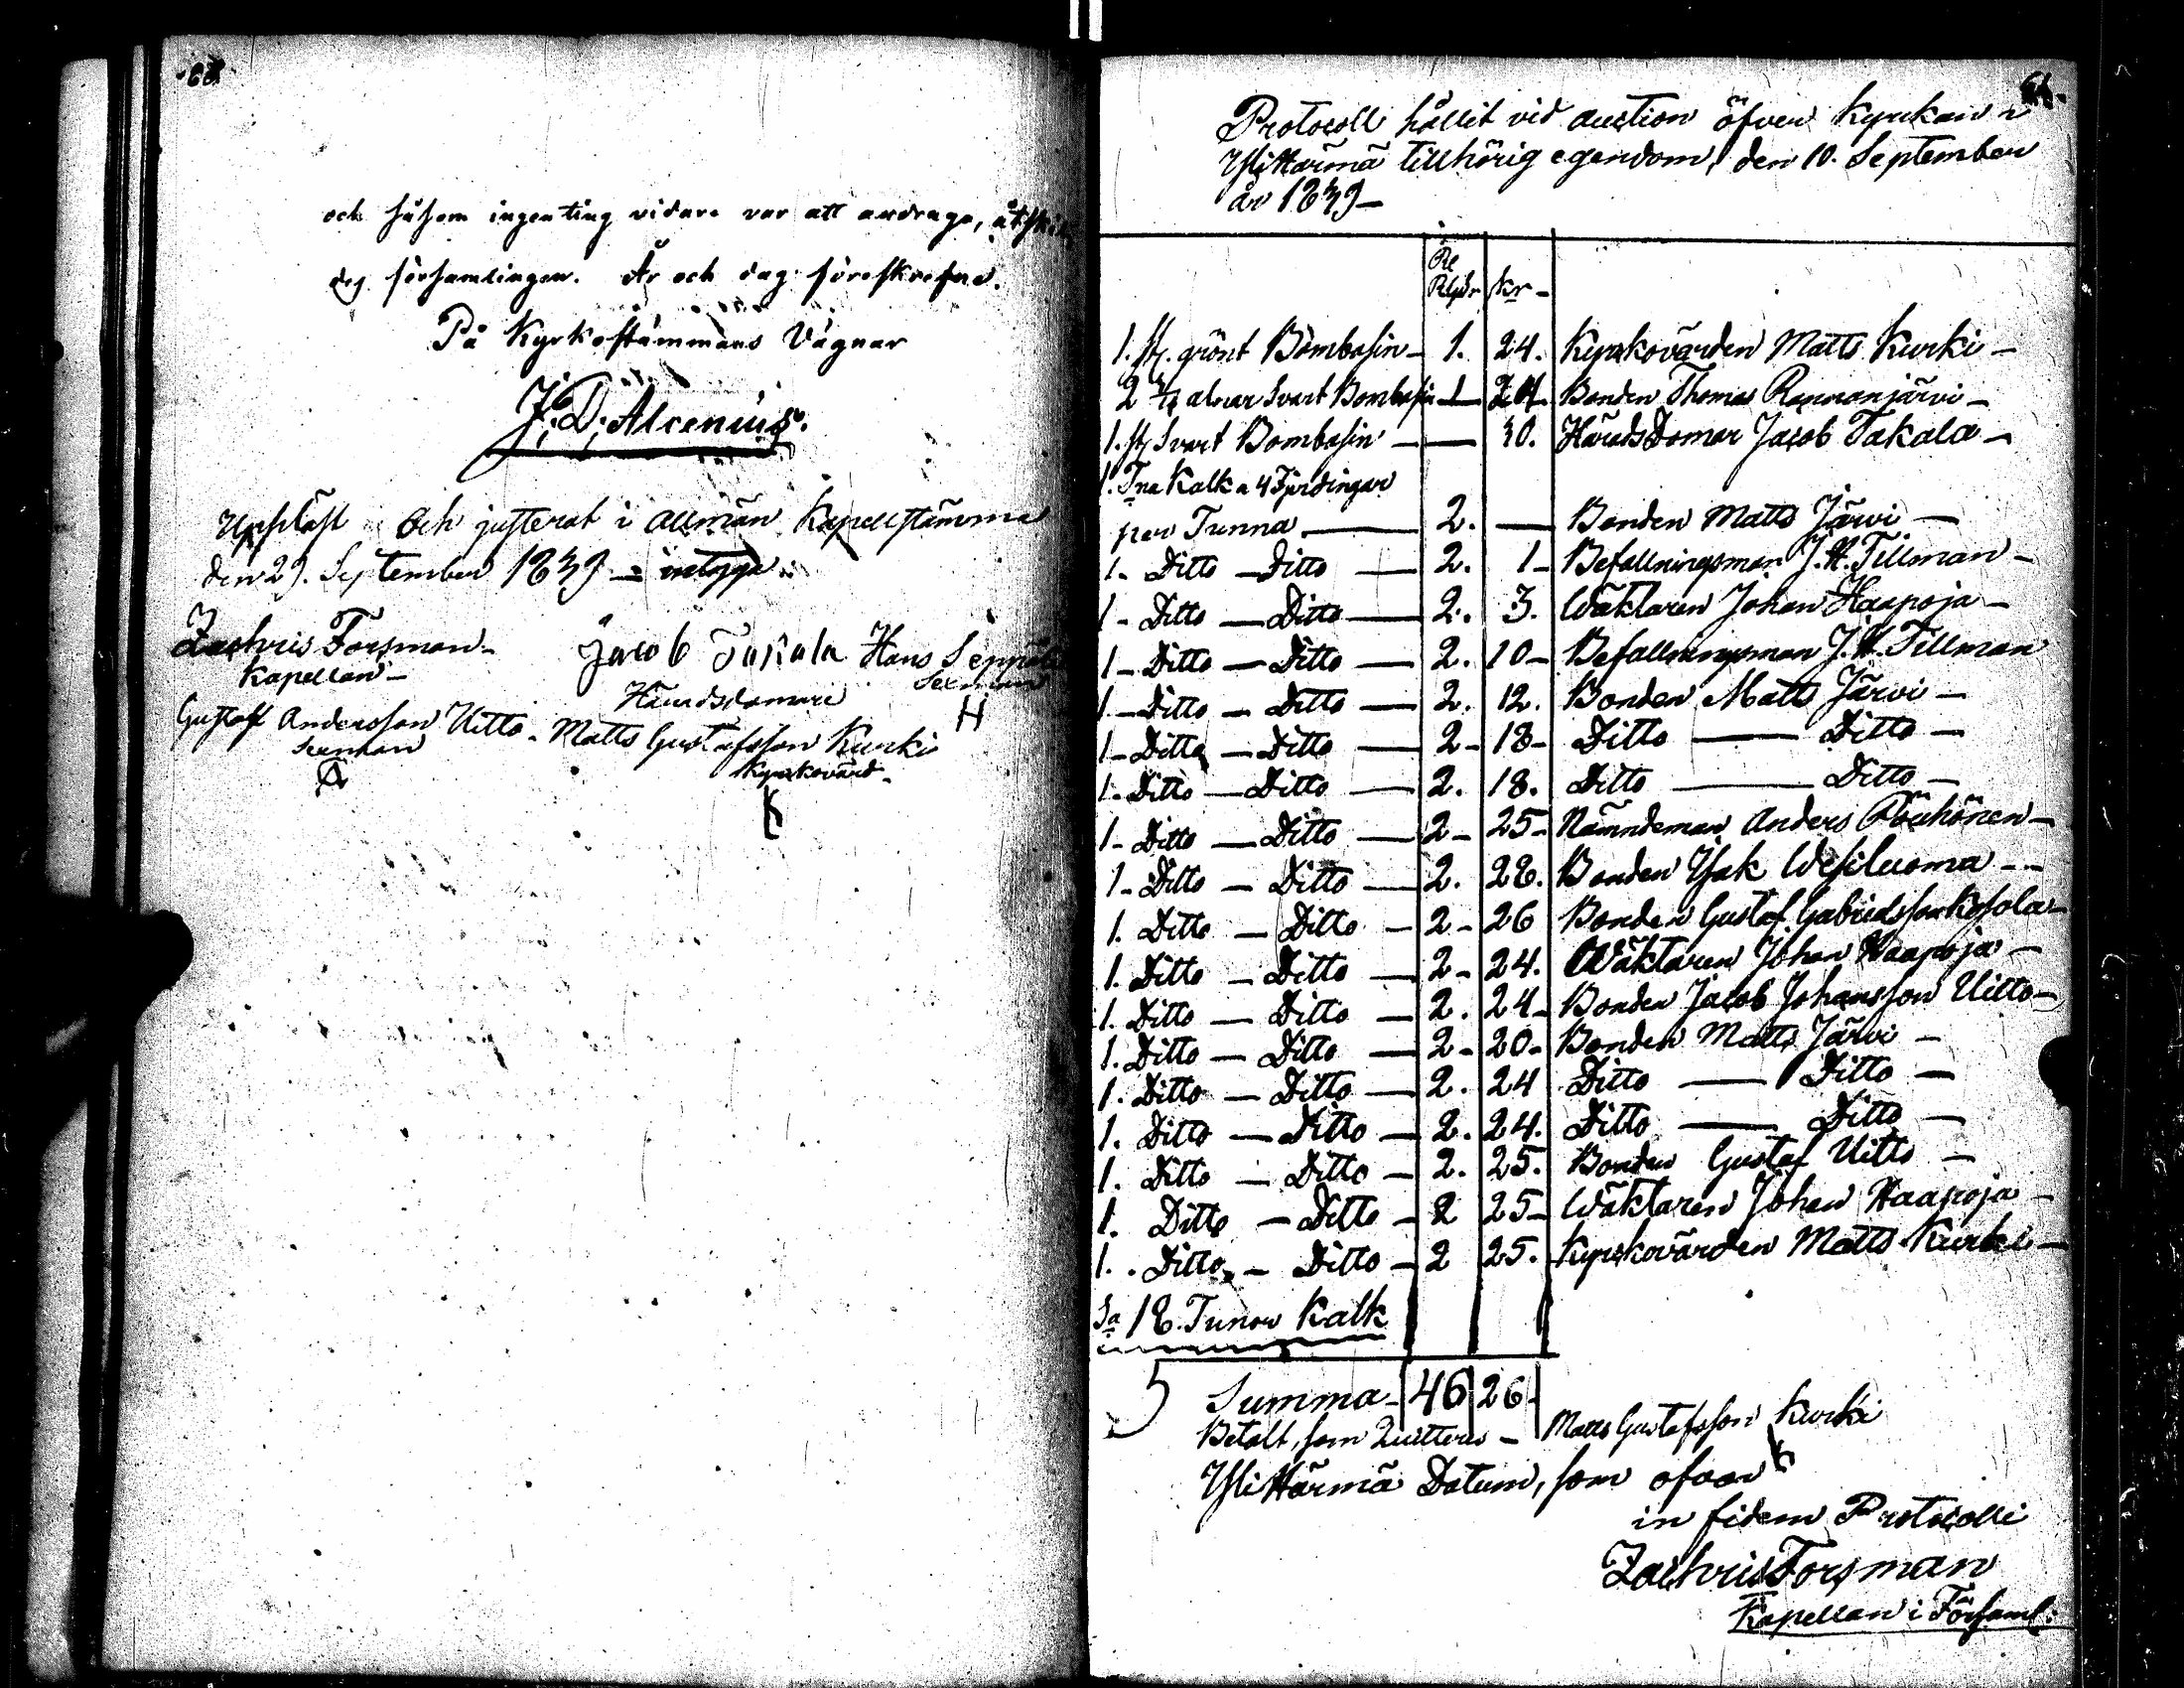 68.
och såsom ingenting vidare var att andraga, åtskil
des församlingen. År och dag föreskrefne.
På Kyrkostämmans Vägnar
J: D: Alcenius.
Uppläst och justerat i allmän Kapellstämma
den 29. September 1839 – intyga
Zachris Forsman –
Kapellan –
Jacob Takala
Häradsdomare
Hans Seppälä
Sexman
H
Gustaf Andersson Uitto –
Sexman
Matts Gustafsson Kurki
Kyrkovärd –
K
Protocoll hållit vid auction öfver Kyrkan i
Ylihärmä tillhörig egendom, den 10. September
år 1839 –
Rgdr kr –
1. st. grönt Bombasin – 1. 24. Kyrkovärden Matts Kurki –
2 alnar Svart Bombasin 1 24 Bonden Thomas
1. st. Svart Bombasin — 30. HäradsDomar Jacob Takala –
1. Tna Kalk a 4 Fjerdingar
per Tunna — 2. — Bonden Matts Järvi –
1 – Ditto – Ditto — 2. 1 – Befallningsman J. H. Tillman –
1 – Ditto – Ditto — 2. 3. Wäktaren Johan Haapoja –
1 – Ditto – Ditto — 2. 10 – Befallningsman J. H. Tillman
1 – Ditto – Ditto — 2. 12. Bonden Matts Järvi –
1 – Ditto – Ditto — 2 – 18 – Ditto — Ditto –
1. Ditto – Ditto — 2. 18. Ditto — Ditto –
1 – Ditto – Ditto — 2 – 25 – Nämndeman Anders
1 – Ditto – Ditto — 2. 28. Bonden Isak Wesiluoma –
1. Ditto – Ditto – 2 – 26 Bonden Gustaf Gabrielsson Kosola –
1. Ditto – Ditto – 2 – 24. Wäktaren Johan Haapoja –
1. Ditto – Ditto – 2. 24 – Bonden Jacob Johansson Uitto –
1. Ditto – Ditto – 2 – 20 – Bonden Matts Järvi –
1. Ditto – Ditto – 2. 24 Ditto — Ditto –
1. Ditto – Ditto – 2. 24. Ditto — Ditto –
1. Ditto – Ditto – 2. 25. Bonden Gustaf Uitto –
1. Ditto – Ditto – 2 25 – Wäktaren Johan Haapoja –
1. Ditto – Ditto – 2 25. Kyrkovärden Matts Kurki –
Sa 18. Tunor Kalk
Summa – 46 26 –
Betalt, som Quitteras – Matts Gustafsson Kurki
K
Ylihärmä Datum, som ofvan
in fidem Protocolli
Zachris Forsman
Kapellan i Församl: